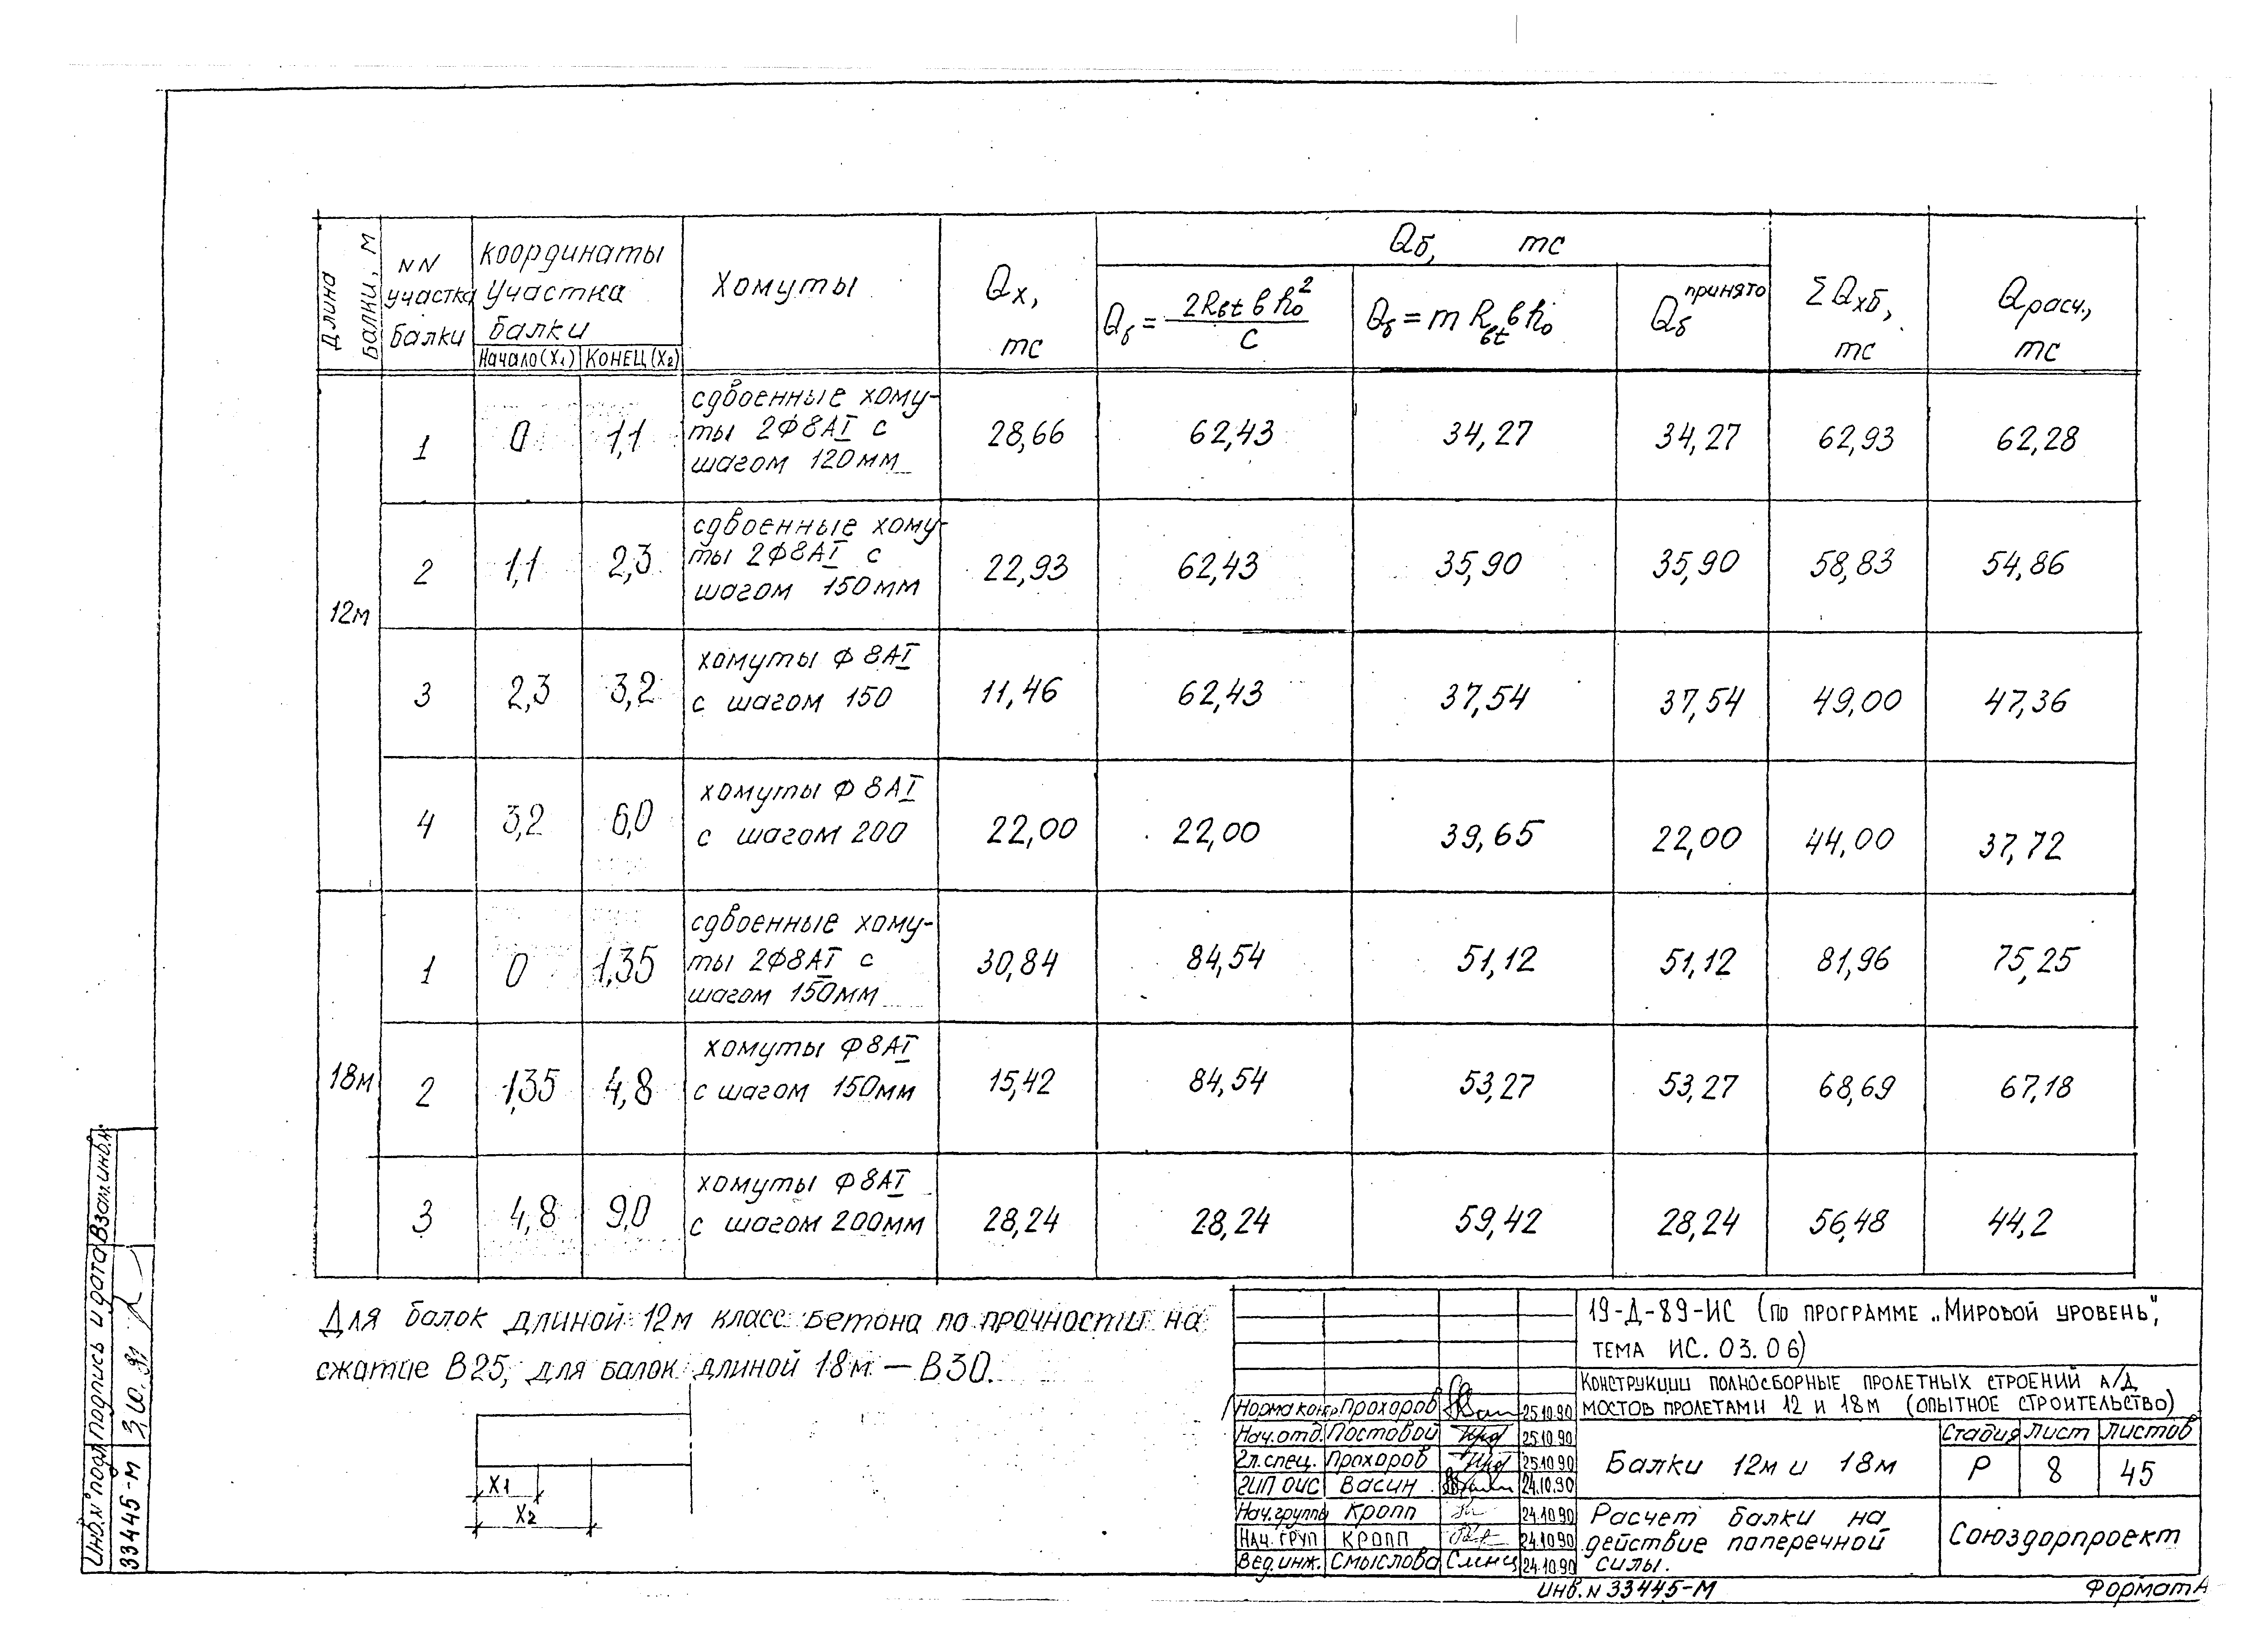 Длина балки, м
NN участка балки
Координаты участка балки
Начало(X1) Конец(X2)
Хомуты
Qх, тс
Qб, тс
Qб = 2Rбt b h₀² / C
Qб = m Rбt b h₀
Qб принято
ΣQхб, тс
Qрасч., тс
12м
1 0 1,1 сдвоенные хому-
ты 2Ф8АI с
шагом 120мм 28,66 62,43 34,27 34,27 62,93 62,28
2 1,1 2,3 сдвоенные хому-
ты 2Ф8АI с
шагом 150мм 22,93 62,43 35,90 35,90 58,83 54,86
3 2,3 3,2 хомуты Ф 8АI
с шагом 150 11,46 62,43 37,54 37,54 49,00 47,36
4 3,2 6,0 хомуты Ф 8АI
с шагом 200 22,00 22,00 39,65 22,00 44,00 37,72
18м
1 0 1,35 сдвоенные хому-
ты 2Ф8АI с
шагом 150мм 30,84 84,54 51,12 51,12 81,96 75,25
2 1,35 4,8 хомуты Ф8АI
с шагом 150мм 15,42 84,54 53,27 53,27 68,69 67,18
3 4,8 9,0 хомуты Ф8АI
с шагом 200мм 28,24 28,24 59,42 28,24 56,48 44,2
Для балок длиной 12м класс бетона по прочности на
сжатие В25, для балок длиной 18м – В30.
X1
X2
19-Д-89-ИС (по программе „Мировой уровень",
тема ИС.03.06)
Конструкции полносборные пролетных строений а/д
мостов пролетами 12 и 18м (опытное строительство)
Норма контр. Прохоров 25.10.90
Нач.отд. Постовой 25.10.90
Гл.спец. Прохоров 25.10.90
ГИП ОИС Васин 24.10.90
Нач.группы Кропп 24.10.90
Нач. груп Кропп 24.10.90
Вед.инж. Смыслова 24.10.90
Балки 12м и 18м
Стадия Лист Листов
Р 8 45
Расчет балки на
действие поперечной
силы.
Союздорпроект
Инв.N 33445-М
Формат А
Инв.N° подл. Подпись и дата Взам.инв.N
33445-М